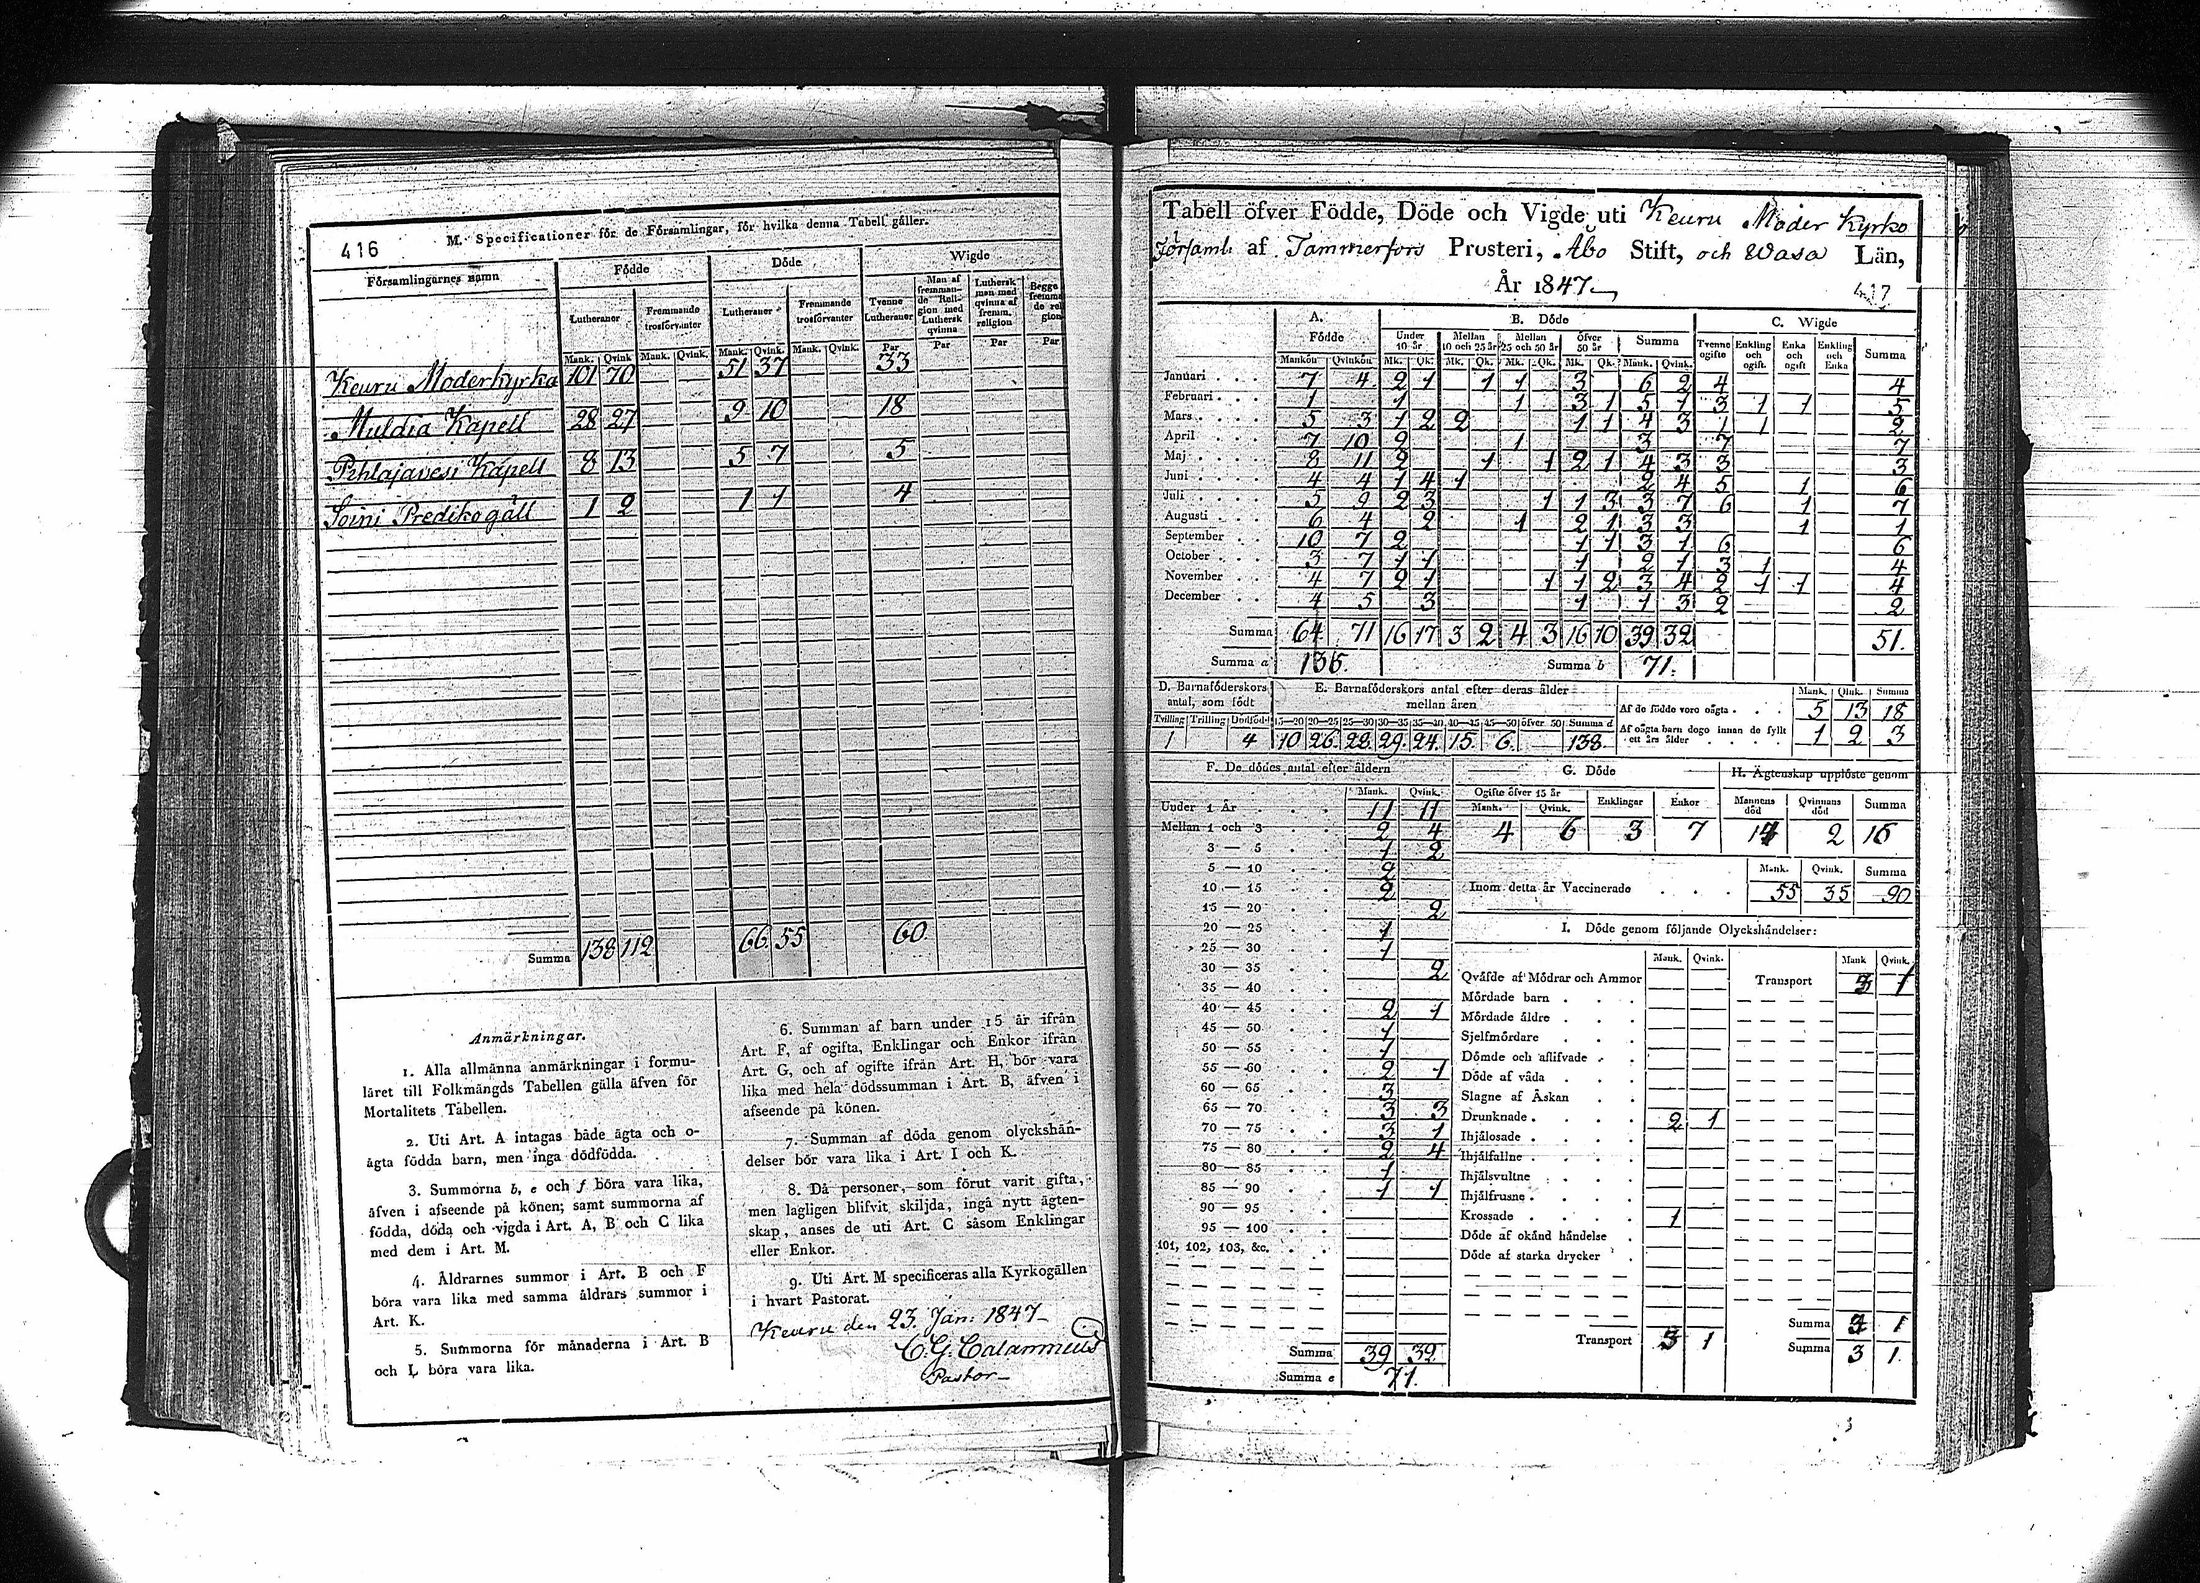 416
M. Specificationer för de Församlingar, för hvilka denna Tabell gäller.
Församlingarnes namn | Födde | Döde | Wigde
Lutheraner | Fremmande trosförvanter | Lutheraner | Fremmande trosförvanter | Tvenne Lutheraner | Man af fremmande Religion med Luthersk qvinna | Luthersk man med qvinna af fremm. religion | Begge fremmande religion
Mank. | Qvink | Mank. | Qvink. | Mank. | Qvink. | Mank. | Qvink. | Par | Par | Par | Par
Keuru Moderkyrka 101 70 51 37 33
Muldia Kapell 28 27 9 10 18
Pihlajavesi Kapell 8 13 5 7 5
Soini Predikogäll 1 2 1 1 4
Summa 138 112 66 55 60
Anmärkningar.
1. Alla allmänna anmärkningar i formu-
läret till Folkmängds Tabellen gälla äfven för
Mortalitets Tabellen.
2. Uti Art. A intagas både ägta och o-
ägta födda barn, men inga dödfödda.
3. Summorna b, e och f böra vara lika,
äfven i afseende på könen; samt summorna af
födda, döda och vigda i Art. A, B och C lika
med dem i Art. M.
4. Åldrarnes summor i Art. B och F
böra vara lika med samma åldrars summor i
Art. K.
5. Summorna för månaderna i Art. B
och L böra vara lika.
6. Summan af barn under 15 år ifrån
Art. F, af ogifta, Enklingar och Enkor ifrån
Art. G, och af ogifte ifrån Art. H, bör vara
lika med hela dödssumman i Art. B, äfven i
afseende på könen.
7. Summan af döda genom olyckshän-
delser bör vara lika i Art. I och K.
8. Då personer, som förut varit gifta,
men lagligen blifvit skiljda, ingå nytt ägten-
skap, anses de uti Art. C såsom Enklingar
eller Enkor.
9. Uti Art. M specificeras alla Kyrkogällen
i hvart Pastorat.
Keuru den 23. Jan. 1847
C. G. Calamnius
Pastor
Tabell öfver Födde, Döde och Vigde uti Keuru Moder Kyrko
församl. af Tammerfors Prosteri, Åbo Stift, och Wasa Län,
År 1847
417
A. Födde | B. Döde | C. Wigde
Under 10 år | Mellan 10 och 25 år | Mellan 25 och 50 år | Öfver 50 år | Summa | Tvenne ogifte | Enkling och ogift. | Enka och ogift | Enkling och Enka | Summa
Mankön | Qvinkön | Mk. | Qk. | Mk. | Qk. | Mk. | Qk. | Mk. | Qk. | Mank. | Qvink.
Januari 7 4 2 1 1 1 3 6 2 4 4
Februari 1 1 1 3 1 5 1 3 1 1 5
Mars 5 3 1 2 2 1 1 4 3 1 1 2
April 7 10 2 1 3 7 7
Maj 8 11 2 1 1 2 1 4 3 3 3
Juni 4 4 1 4 1 2 4 5 1 6
Juli 5 9 2 3 1 1 3 3 7 6 1 7
Augusti 6 4 2 1 2 1 3 3 1 1
September 10 7 2 1 1 3 1 6 6
October 3 7 1 1 1 2 1 3 1 4
November 4 7 2 1 1 1 2 3 4 2 1 1 4
December 4 5 3 1 1 3 2 2
Summa 64 71 16 17 3 2 4 3 16 10 39 32 51.
Summa a 135. Summa b 71.
D. Barnaföderskors antal, som födt | E. Barnaföderskors antal efter deras ålder mellan åren
Tvilling | Trilling | Dödfödd | 15—20 | 20—25 | 25—30 | 30—35 | 35—40 | 40—45 | 45—50 | öfver 50 | Summa d
1 4 10 26 28 29 24 15 6 138
Mank. | Qink. | Summa
Af de födde voro oägta 5 13 18
Af oägta barn dogo innan de fyllt ett års ålder 1 2 3
F. De dödes antal efter åldern
Mank. | Qvink.
Under 1 År 11 11
Mellan 1 och 3 2 4
3 — 5 1 2
5 — 10 2
10 — 15 2
15 — 20 2
20 — 25 1
25 — 30 1
30 — 35 2
35 — 40
40 — 45 2 1
45 — 50 1
50 — 55 1
55 — 60 2 1
60 — 65 3
65 — 70 3 3
70 — 75 3 1
75 — 80 2 4
80 — 85 1
85 — 90 1 1
90 — 95
95 — 100
101, 102, 103, &c.
Summa 39 32
Summa e 71.
G. Döde
Ogifte öfver 15 år | Enklingar | Enkor
Mank. | Qvink.
4 6 3 7
H. Ägtenskap upplöste genom
Mannens död | Qvinnans död | Summa
14 2 16
Mank. | Qvink. | Summa
Inom detta år Vaccinerade 55 35 90
I. Döde genom följande Olyckshändelser:
Mank. | Qvink. | Mank | Qvink.
Qväfde af Mödrar och Ammor
Mördade barn
Mördade äldre
Sjelfmördare
Dömde och aflifvade
Döde af våda
Slagne af Åskan
Drunknade 2 1
Ihjälosade
Ihjälfallne
Ihjälsvultne
Ihjälfrusne
Krossade 1
Döde af okänd händelse
Döde af starka drycker
Transport 3 1
Transport 3 1
Summa 3 1
Summa 3 1.